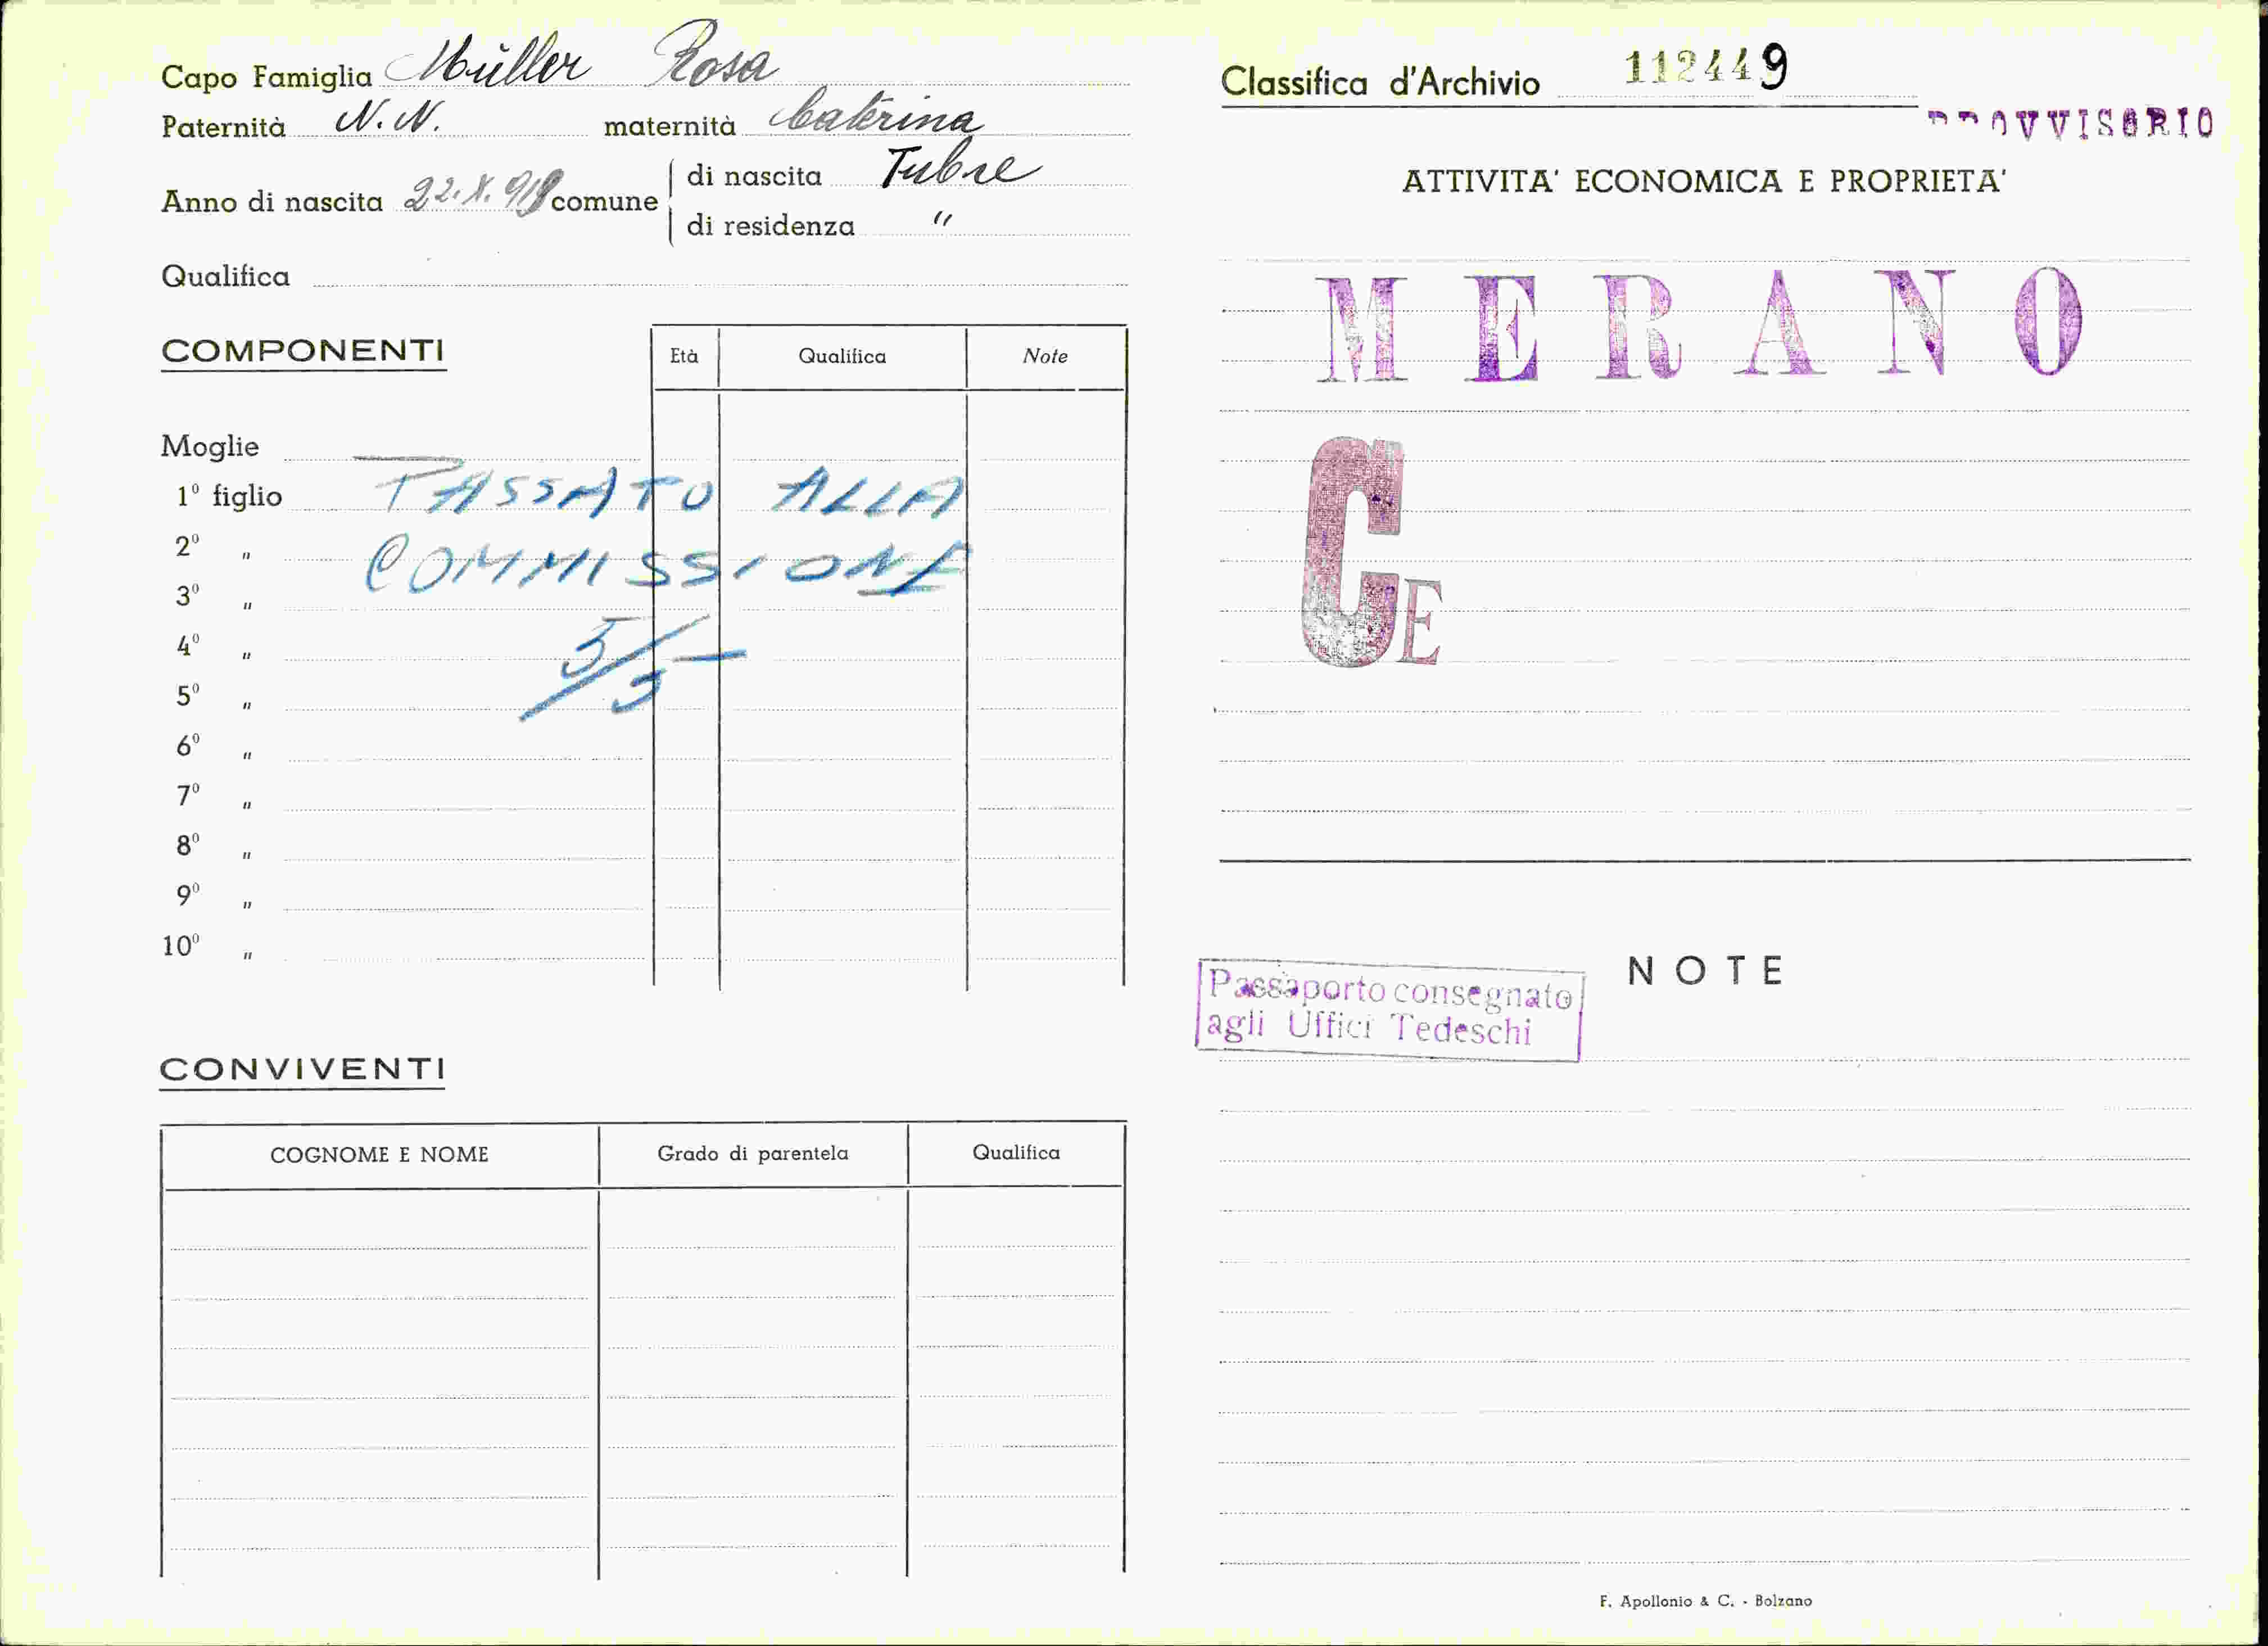 Capo Famiglia Müller Rosa
Paternità N. N. maternità Caterina
Anno di nascita 22. X. 919 comune
di nascita Tubre
di residenza "
Qualifica
COMPONENTI
Età Qualifica Note
Moglie
1º figlio
2º "
3º "
4º "
5º "
6º "
7º "
8º "
9º "
10º "
PASSATO ALLA
COMMISSIONE
5/5 -
CONVIVENTI
COGNOME E NOME Grado di parentela Qualifica
Classifica d'Archivio 112449
PROVVISORIO
ATTIVITA' ECONOMICA E PROPRIETA'
MERANO
CE
NOTE
Passaporto consegnato
agli Uffici Tedeschi
F. Apollonio & C. - Bolzano